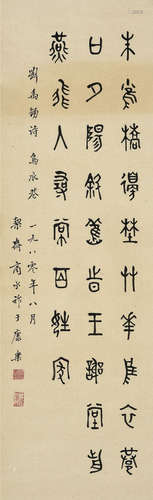 朱雀橋邊埜艸華烏衣巷
口夕陽斜舊時王謝堂前
燕飛入尋常百姓家
劉禹錫詩 烏衣巷 一九八〇年八月
契齋商承祚于康樂